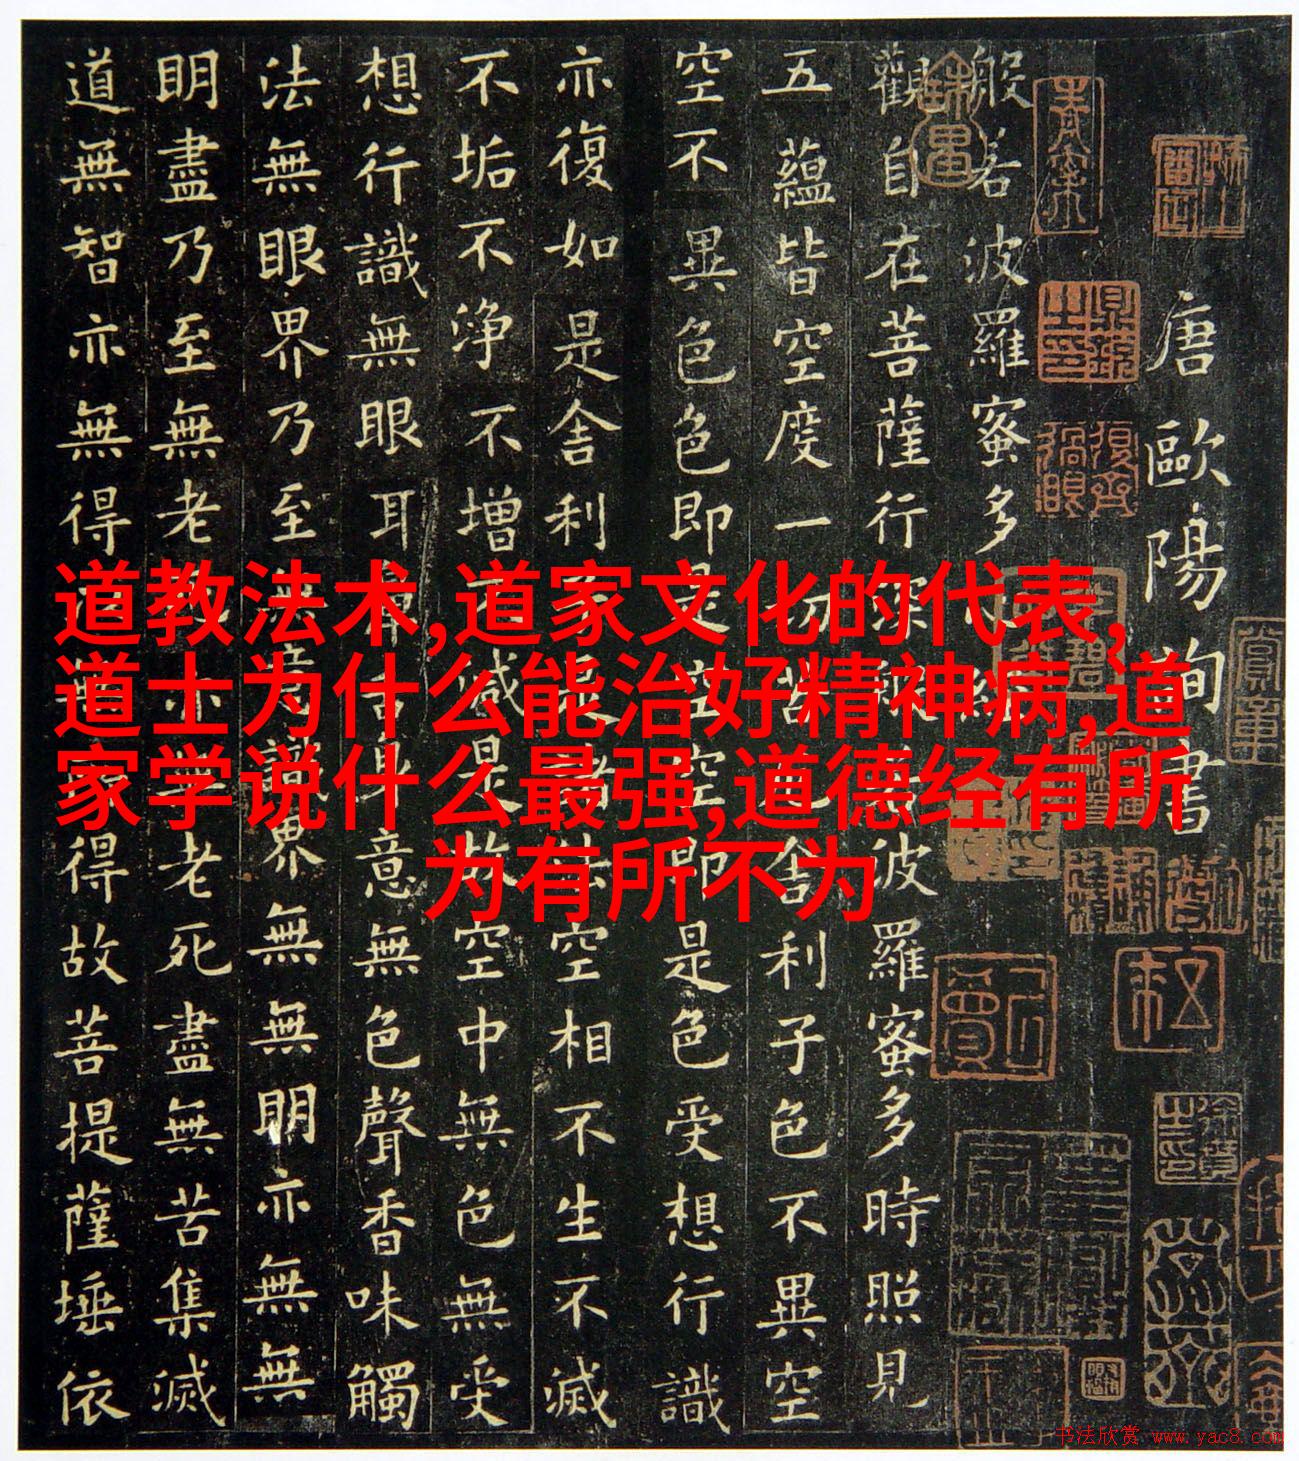 唐歐陽詢書
般若波羅蜜多心經
觀自在菩薩行深般若波羅蜜多時照見
五蘊皆空度一切苦厄舍利子色不異空
空不異色色即是空空即是色受想行識
亦復如是舍利子是諸法空相不生不滅
不垢不淨不增不減是故空中無色無受
想行識無眼耳鼻舌身意無色聲香味觸
法無眼界乃至無意識界無無明亦無無
明盡乃至無老死亦無老死盡無苦集滅
道無智亦無得以無所得故菩提薩埵依
道教法术,道家文化的代表,
道士为什么能治好精神病,道
家学说什么最强,道德经有所
为有所不为
书法欣赏 www.yac8.com